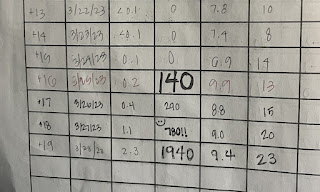 +13 3/22/23 <0.1 0 7.8 10
+14 3/23/23 <0.1 0 7.4 8
+15 3/24/23 <0.1 0 6.9 14
+16 3/25/23 0.2 140 9.9 13
+17 3/26/23 0.4 290 8.8 15
+18 3/27/23 1.1 780!! 9.0 20
+19 3/28/23 2.3 1940 9.4 23